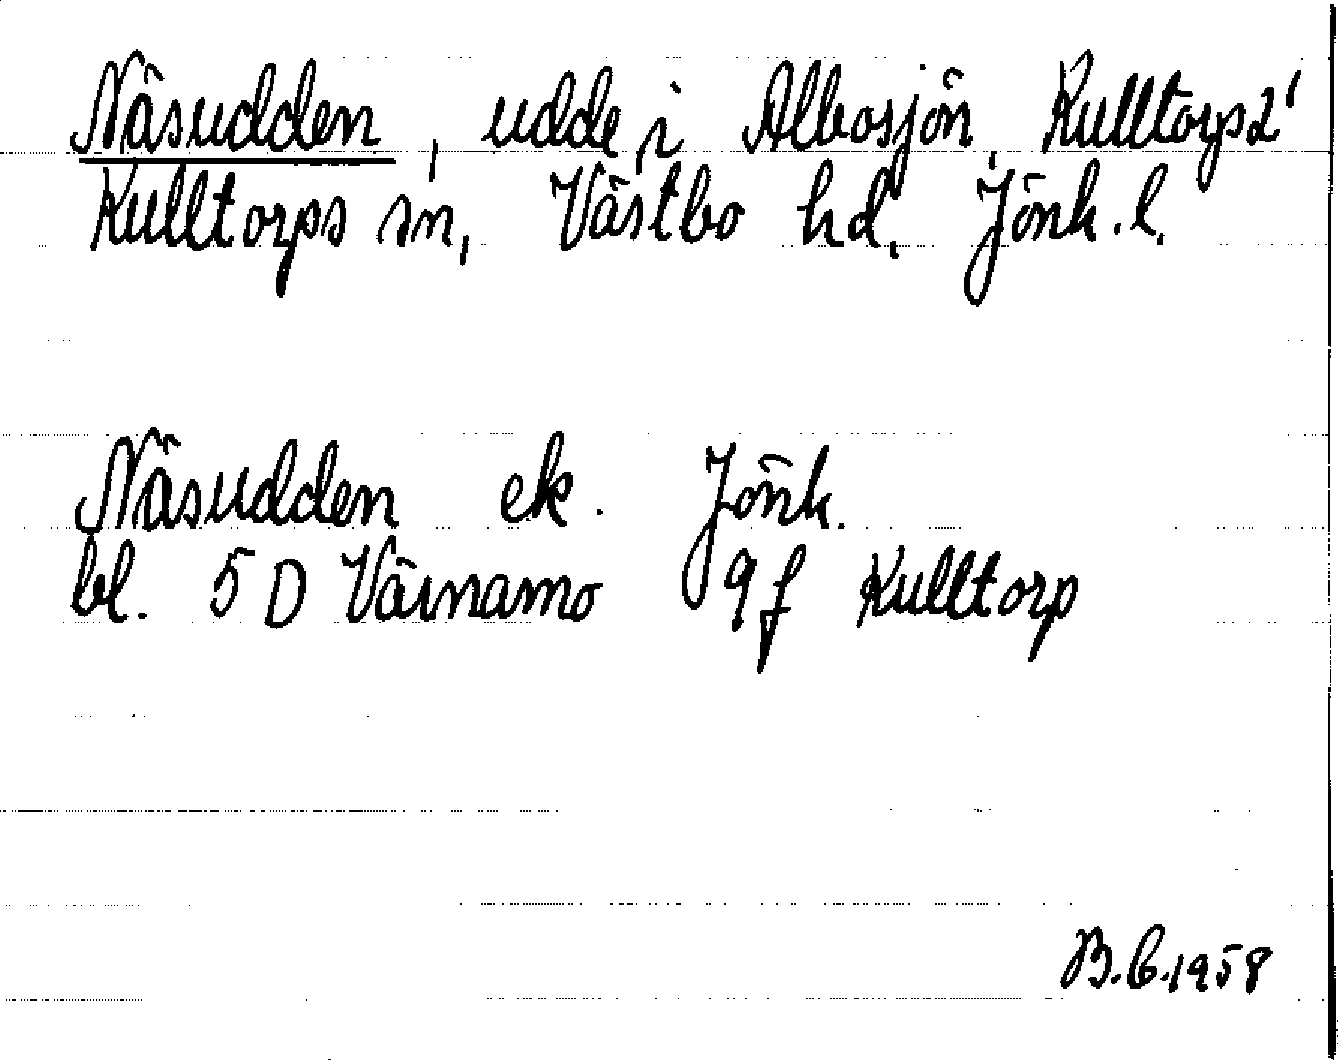 Näsudden, udde, i Albosjön, Kulltorps 2'
Kulltorps sn, Västbo hd, Jönk. l.
Näsudden ek. Jönk.
bl. 5 D Värnamo 9 f Kulltorp
B.C.1958